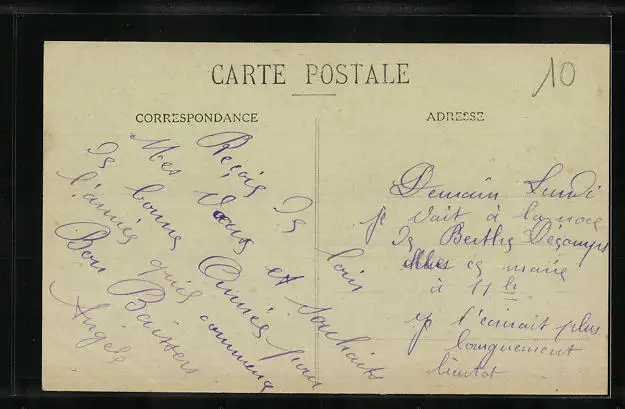 CARTE POSTALE
10
CORRESPONDANCE
ADRESSE
Reçois de loin
Mes Vœux et Souhaits
de bonne Année pour
l'année qui commence
Bon Baisers
Angèle
Demain Lundi
je vait à la noce
de Berthe Descamps
elle se marie
à 11 h
je t'écrirait plus
longuement
bientot